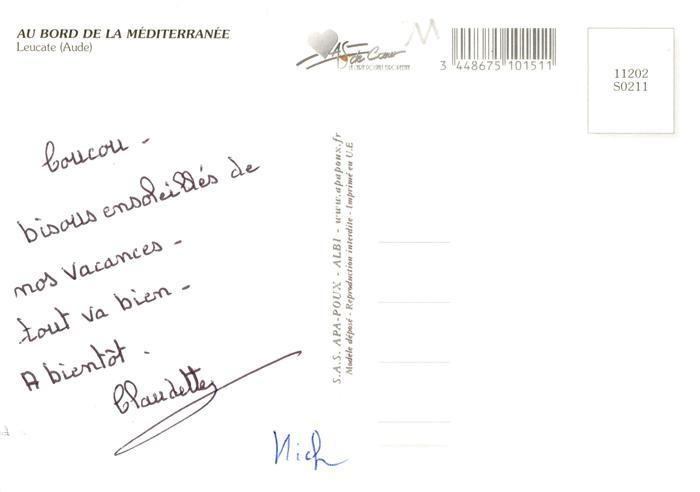 AU BORD DE LA MÉDITERRANÉE
Leucate (Aude)
AS de Cœur
LA CARTE POSTALE EUROPEENNE
M
3 448675 101511
11202
S0211
Coucou -
bisous ensoleillés de
nos vacances -
tout va bien -
A bientôt.
Claudette
Mich
S.A.S. APA-POUX - ALBI - www.apapoux.fr
Modèle déposé - Reproduction interdite - Imprimé en U.E